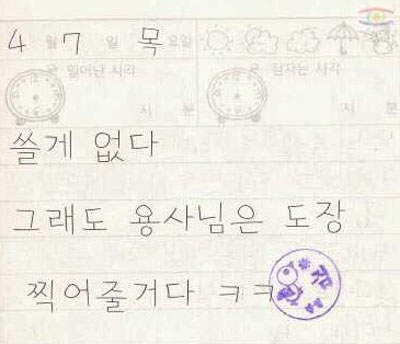 4 월 7 일 목 요일
일어난 시각 잠자는 시각
시 분 시 분
쓸게 없다
그래도 용사님은 도장
찍어줄거다 ㅋㅋ